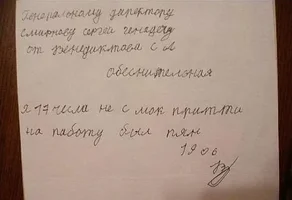 Генеральному директору
смирнову сергей генадеву
от Венедиктова С А
обеснительная
я 17 числа не с мок притти
на работу был пян
19 06